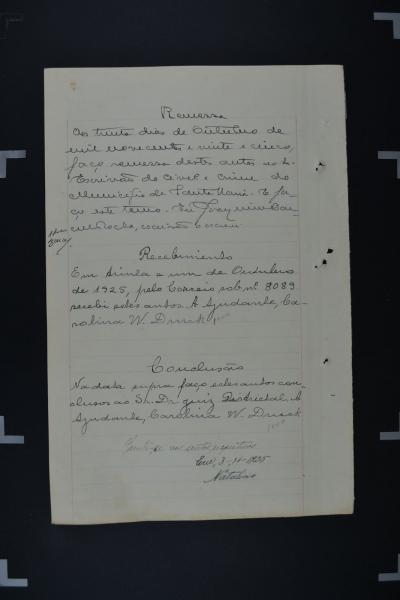 Remessa
Aos trinta dias de Outubro de
mil novecentos e vinte e cinco,
faço remessa destes autos ao Sr.
Escrivão do Civel e Crime do
Municipio de Santa Maria. E fa-
ço este termo. Eu Joaquim
escrivão o escrevi
Recebimento
Em trinta e um de Outubro
de 1925, pelo Correio sob nº 8089
recebi estes autos. A Ajudante, Ca-
rolina W. Druck
Conclusão
Na data supra faço estes autos con-
clusos ao Sr. Dr. Juiz Districtal. A
Ajudante, Carolina W. Druck
nos autos
Em, 3-11-925